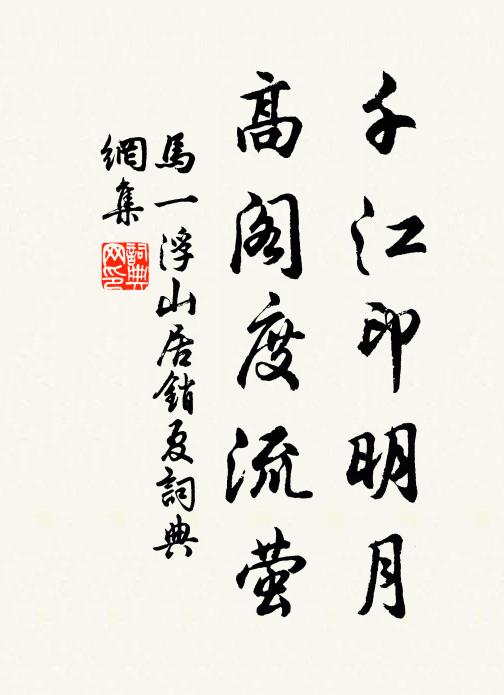 千江印明月
高阁度流萤
馬一浮山居銷夏詞典
網集
詞典
网印